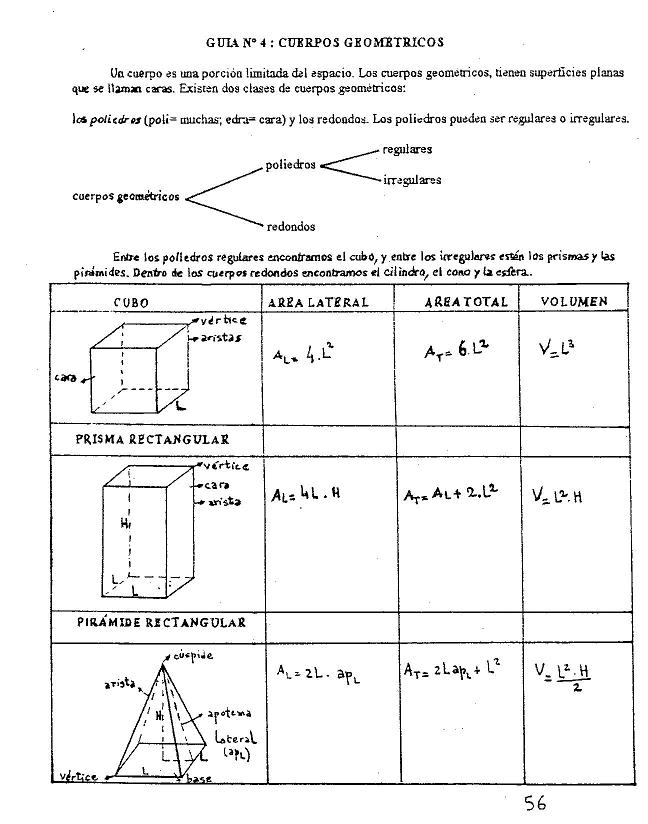 GUIA Nº 4 : CUERPOS GEOMETRICOS
Un cuerpo es una porción limitada del espacio. Los cuerpos geometricos, tienen superficies planas
que se llaman caras. Existen dos clases de cuerpos geométricos:
los poliedros (poli= muchas; edra= cara) y los redondos. Los poliedros pueden ser regulares o irregulares.
regulares
poliedros
irregulares
cuerpos geométricos
redondos
Entre los poliedros regulares encontramos el cubo, y entre los irregulares están los prismas y las
pirámides. Dentro de los cuerpos redondos encontramos el cilindro, el cono y la esfera..
CUBO AREA LATERAL AREA TOTAL VOLUMEN
vértice
aristas
cara
L
AL= 4.L²
AT= 6.L²
V=L³
PRISMA RECTANGULAR
vértice
cara
arista
H
L
L
AL= 4L.H
AT= AL+2.L²
V=L².H
PIRÁMIDE RECTANGULAR
cúspide
arista
H
apotema
lateral
(apL)
L
L
vértice
base
AL=2L. apL
AT= 2LapL+L²
V= L².H
2
56